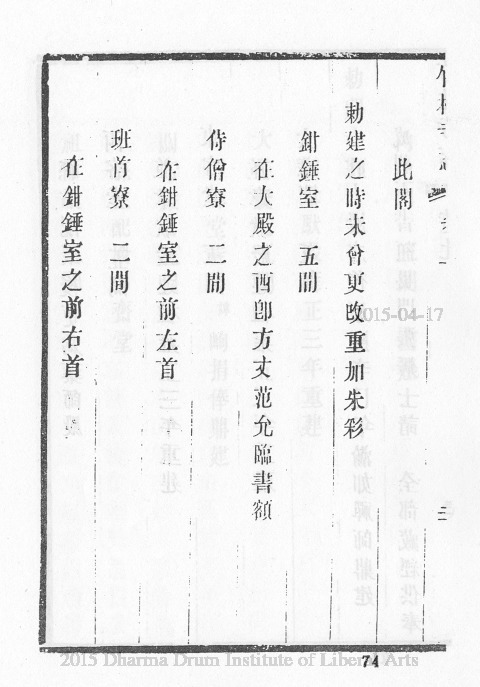 竹林寺志
此閣
勅建之時未曾更改重加朱彩
鉗錘室 五間
在大殿之西卽方丈范允臨書額
侍僧寮 二間
在鉗錘室之前左首
班首寮 二間
在鉗錘室之前右首
74
2015-04-17
2015 Dharma Drum Institute of Liberal Arts